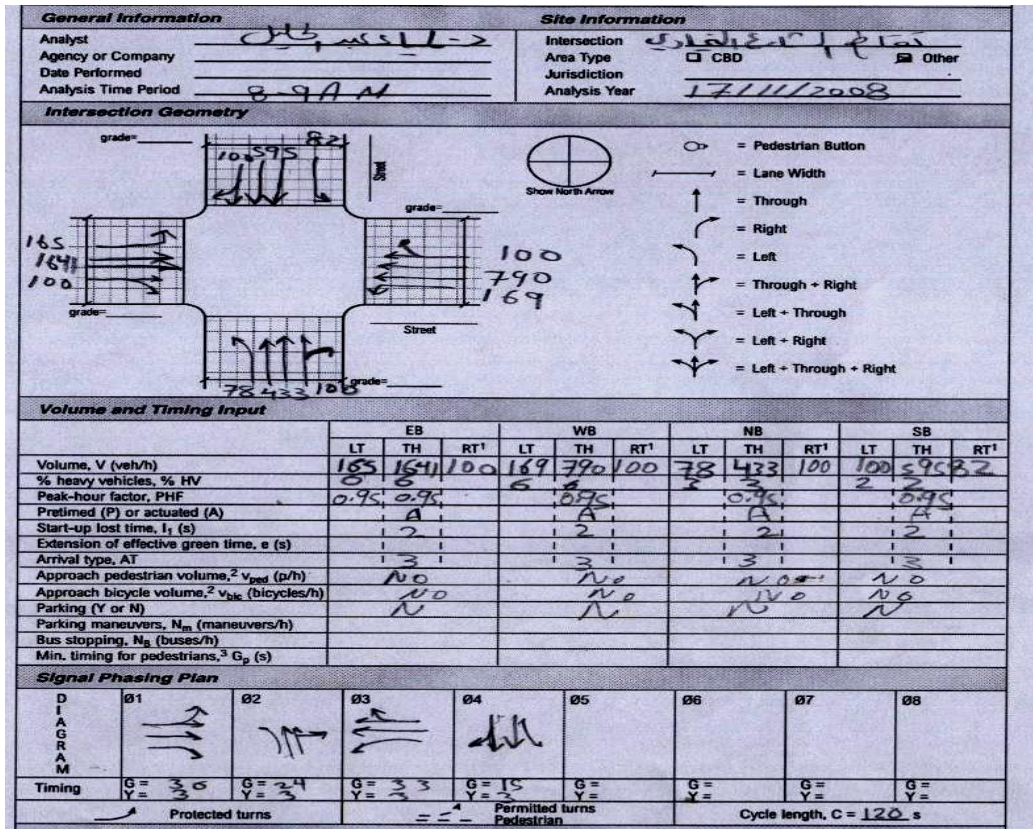 General Information
Site Information
Analyst
Agency or Company
Date Performed
Analysis Time Period 8-9 AM
Intersection تقاطع
Area Type CBD Other
Jurisdiction
Analysis Year 17/11/2008
Intersection Geometry
grade=
82
100 595
Street
Show North Arrow
= Pedestrian Button
= Lane Width
= Through
= Right
= Left
= Through + Right
= Left + Through
= Left + Right
= Left + Through + Right
grade=
165
1641
100
100
790
169
grade=
Street
78 433 100
grade=
Volume and Timing Input
EB WB NB SB
LT TH RT¹ LT TH RT¹ LT TH RT¹ LT TH RT¹
Volume, V (veh/h) 165 1641 100 169 790 100 78 433 100 100 595 82
% heavy vehicles, % HV 6 6 6 6 2 2 2 2
Peak-hour factor, PHF 0.95 0.95 0.95 0.95 0.95
Pretimed (P) or actuated (A) A A A A
Start-up lost time, l₁ (s) 2 2 2 2
Extension of effective green time, e (s)
Arrival type, AT 3 3 3 3
Approach pedestrian volume,² vped (p/h) NO NO NO NO
Approach bicycle volume,² vbic (bicycles/h) NO NO NO NO
Parking (Y or N) N N N N
Parking maneuvers, Nm (maneuvers/h)
Bus stopping, NB (buses/h)
Min. timing for pedestrians,³ Gp (s)
Signal Phasing Plan
DIAGRAM Ø1 Ø2 Ø3 Ø4 Ø5 Ø6 Ø7 Ø8
Timing G = 36 G = 24 G = 33 G = 15 G = G = G = G =
Y = 3 Y = 3 Y = 3 Y = 3 Y = Y = Y = Y =
Protected turns
Permitted turns
Pedestrian
Cycle length, C = 120 s